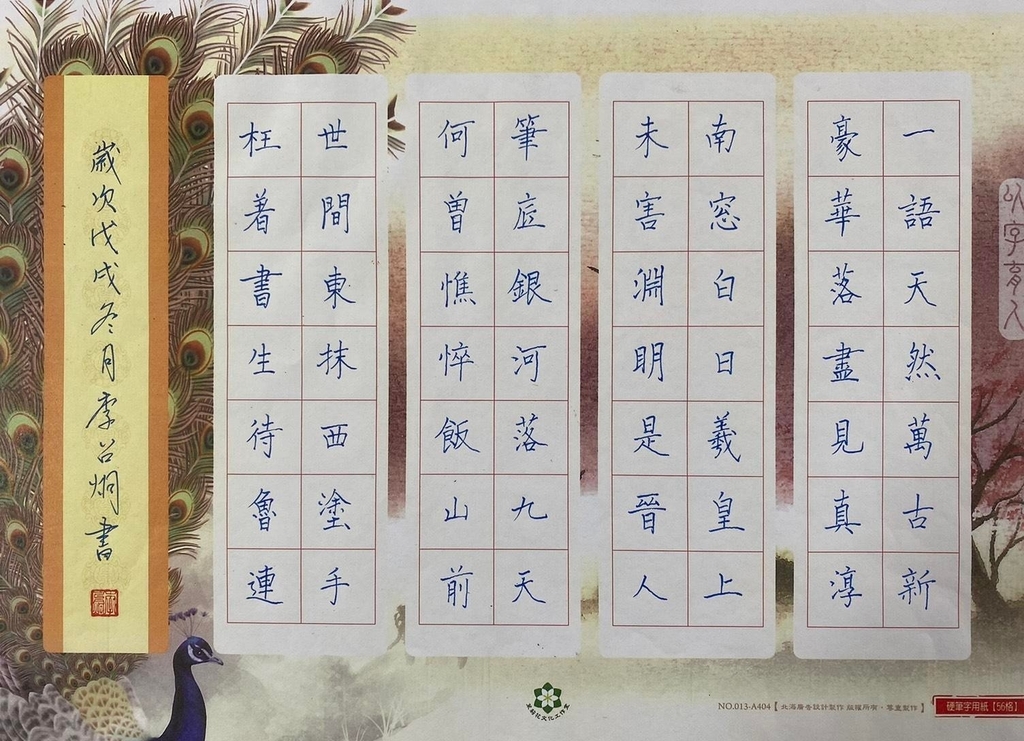 一語天然萬古新
豪華落盡見真淳
南窓白日羲皇上
未害淵明是晉人
筆底銀河落九天
何曽憔悴飯山前
世間東抹西塗手
枉着書生待魯連
歲次戊戌冬月李公炯書
以字育人
NO.013-A404【北海廣告設計製作 版權所有，尊重製作】
硬筆字用紙【56格】